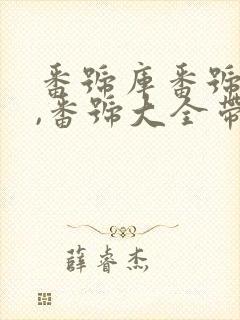 番號庫番號
,番號大全帶
薛睿杰